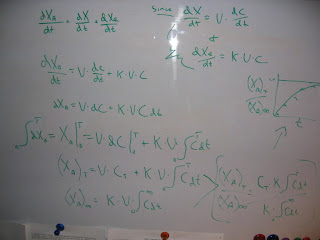 dXa/dt = dX/dt + dXe/dt
Since dX/dt = V · dc/dt
&
∴ dXe/dt = K·V·C
dXa/dt = V · dc/dt + K·V·C
dXa = V·dC + K·V·C dt
∫₀ᵀ dXa = Xa|₀ᵀ = V·dC|₀ᵀ + K·V·∫₀ᵀ C dt
(Xa)T = V·CT + K·V·∫₀ᵀ C dt
(Xa)∞ = K·V·∫₀^∞ C dt
(Xa)T
(Xa)∞
t
(Xa)T CT K∫₀ᵀ C dt
(Xa)∞ K·∫₀^∞ C dt